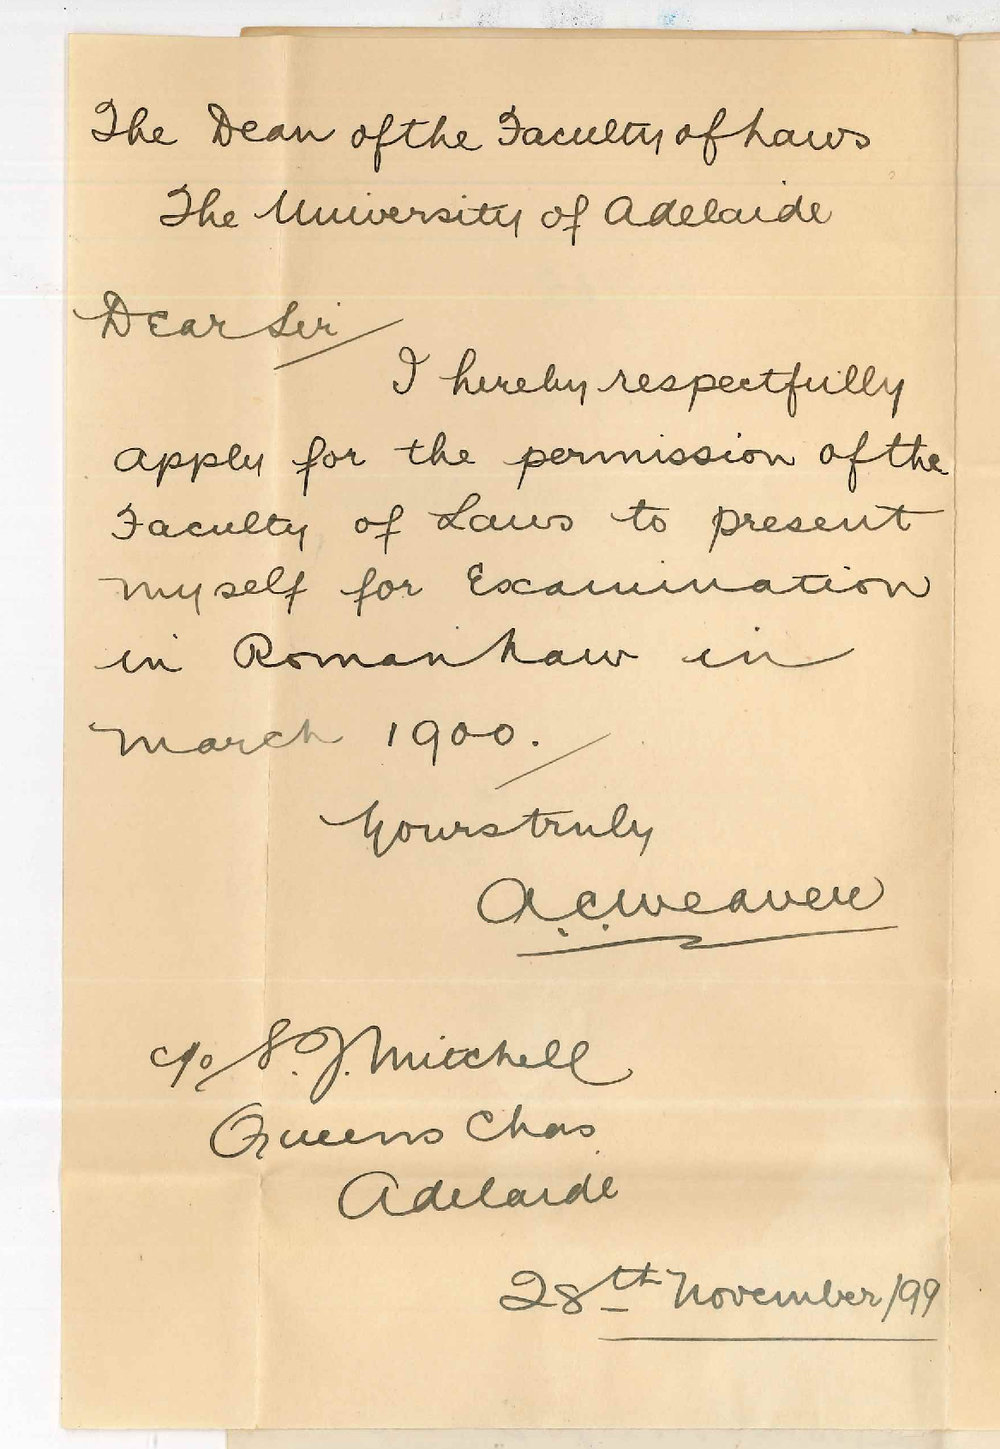 The Dean of the Faculty of Laws
The University of Adelaide
Dear Sir
I hereby respectfully
apply for the permission of the
Faculty of Laws to present
myself for Examination
in Roman Law in
March 1900.
Yours truly
A.C. Weaver
c/o S. J. Mitchell
Queens Chas
Adelaide
28th November/99